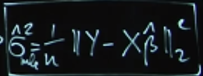 σ̂²ₘₗₑ = 1/n ‖Y − Xβ̂‖₂²